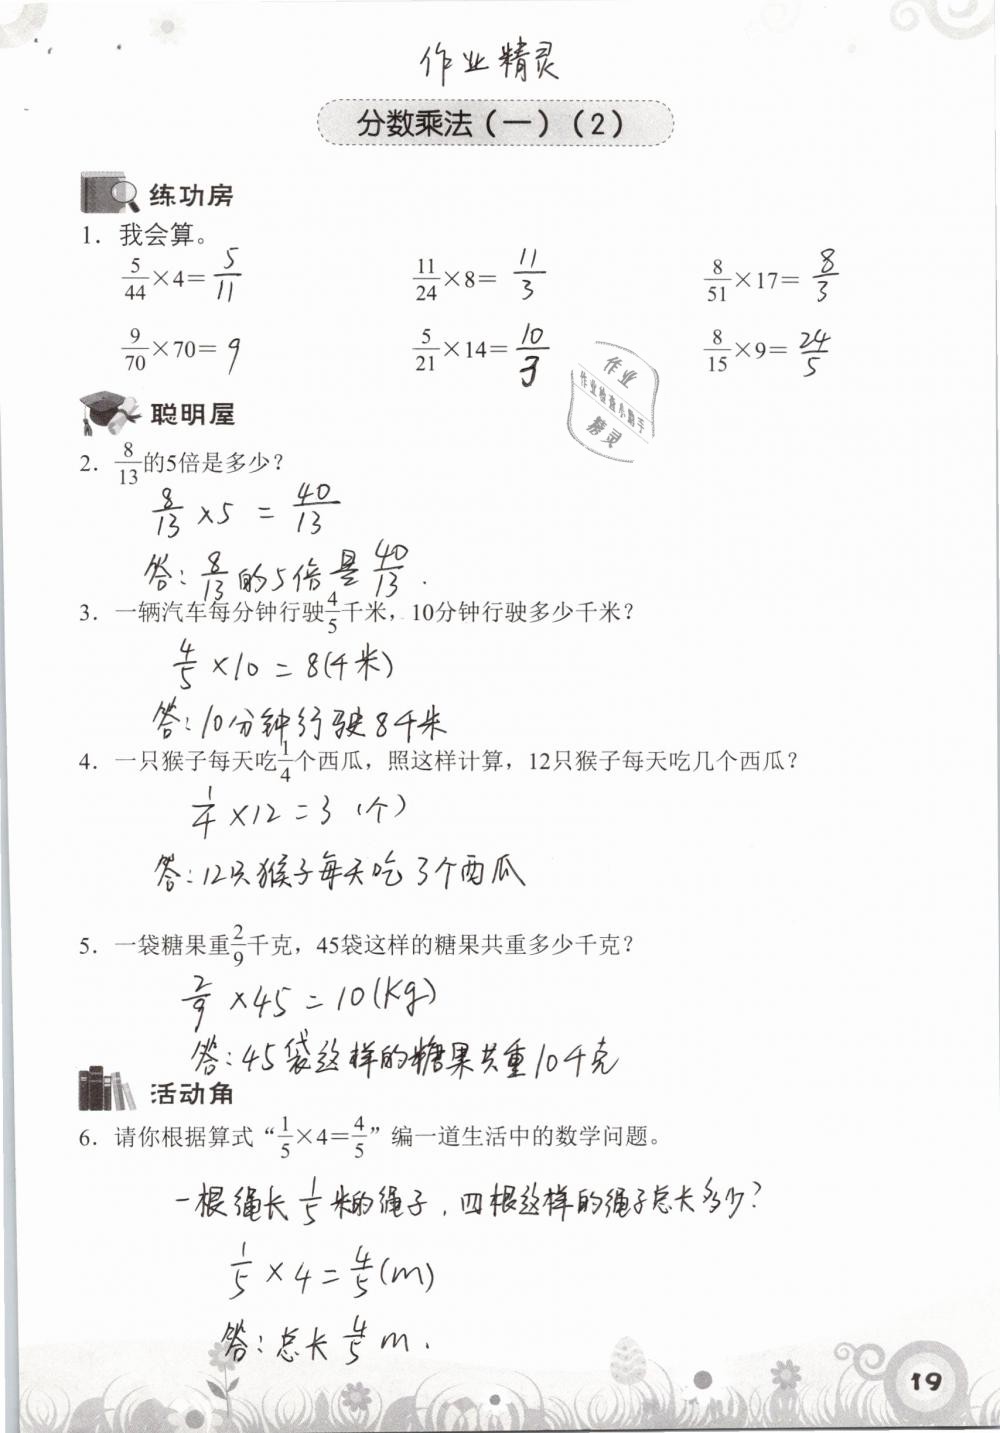 作业精灵
分数乘法（一）（2）
练功房
1. 我会算。
5/44×4= 5/11 11/24×8= 11/3 8/51×17= 8/3
9/70×70= 9 5/21×14= 10/3 8/15×9= 24/5
作业
作业检查小助手
精灵
聪明屋
2. 8/13的5倍是多少？
8/13 ×5 = 40/13
答：8/13的5倍是40/13.
3. 一辆汽车每分钟行驶4/5千米，10分钟行驶多少千米？
4/5 ×10 = 8(千米)
答：10分钟行驶8千米
4. 一只猴子每天吃1/4个西瓜，照这样计算，12只猴子每天吃几个西瓜？
1/4 ×12 = 3 (个)
答：12只猴子每天吃3个西瓜
5. 一袋糖果重2/9千克，45袋这样的糖果共重多少千克？
2/9 ×45 = 10(Kg)
答：45袋这样的糖果共重10千克
活动角
6. 请你根据算式“1/5×4=4/5”编一道生活中的数学问题。
一根绳长1/5米的绳子，四根这样的绳子总长多少？
1/5 ×4 = 4/5(m)
答：总长4/5 m.
19